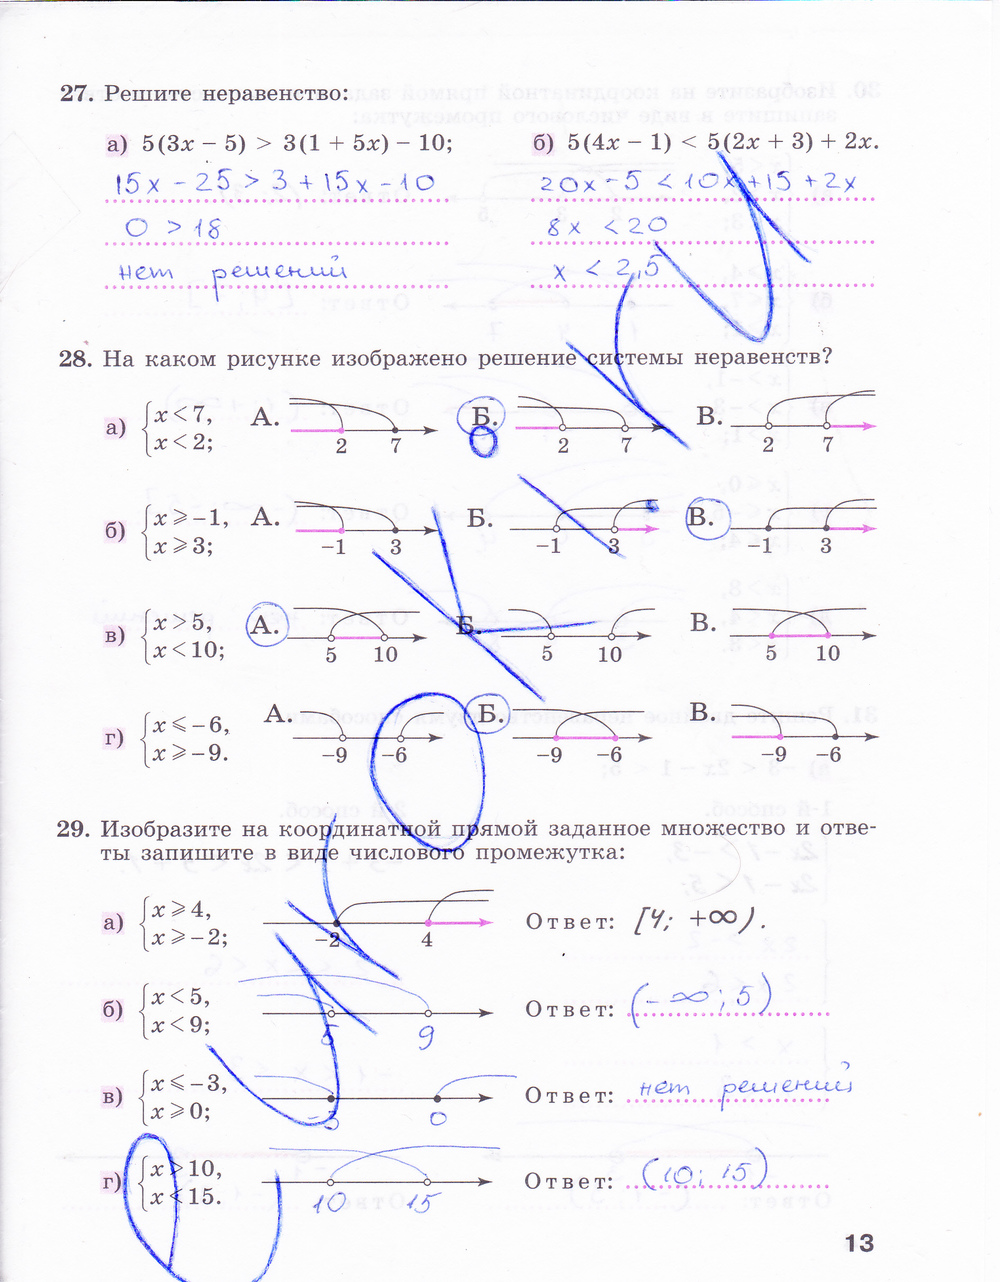 27. Решите неравенство:
а) 5(3x − 5) > 3(1 + 5x) − 10;
б) 5(4x − 1) < 5(2x + 3) + 2x.
15x − 25 > 3 + 15x − 10
20x − 5 < 10x + 15 + 2x
0 > 18
8x < 20
нет решений
x < 2,5
28. На каком рисунке изображено решение системы неравенств?
а) x < 7,
x < 2;
А. Б. В.
2 7 2 7 2 7
б) x ⩾ −1,
x ⩾ 3;
А. Б. В.
−1 3 −1 3 −1 3
в) x > 5,
x < 10;
А. Б. В.
5 10 5 10 5 10
г) x ⩽ −6,
x ⩾ −9.
А. Б. В.
−9 −6 −9 −6 −9 −6
29. Изобразите на координатной прямой заданное множество и отве-
ты запишите в виде числового промежутка:
а) x ⩾ 4,
x ⩾ −2;
−2 4
Ответ: [4; +∞).
б) x < 5,
x < 9;
5 9
Ответ: (−∞; 5)
в) x ⩽ −3,
x ⩾ 0;
−3 0
Ответ: нет решений
г) x > 10,
x < 15.
10 15
Ответ: (10; 15)
13